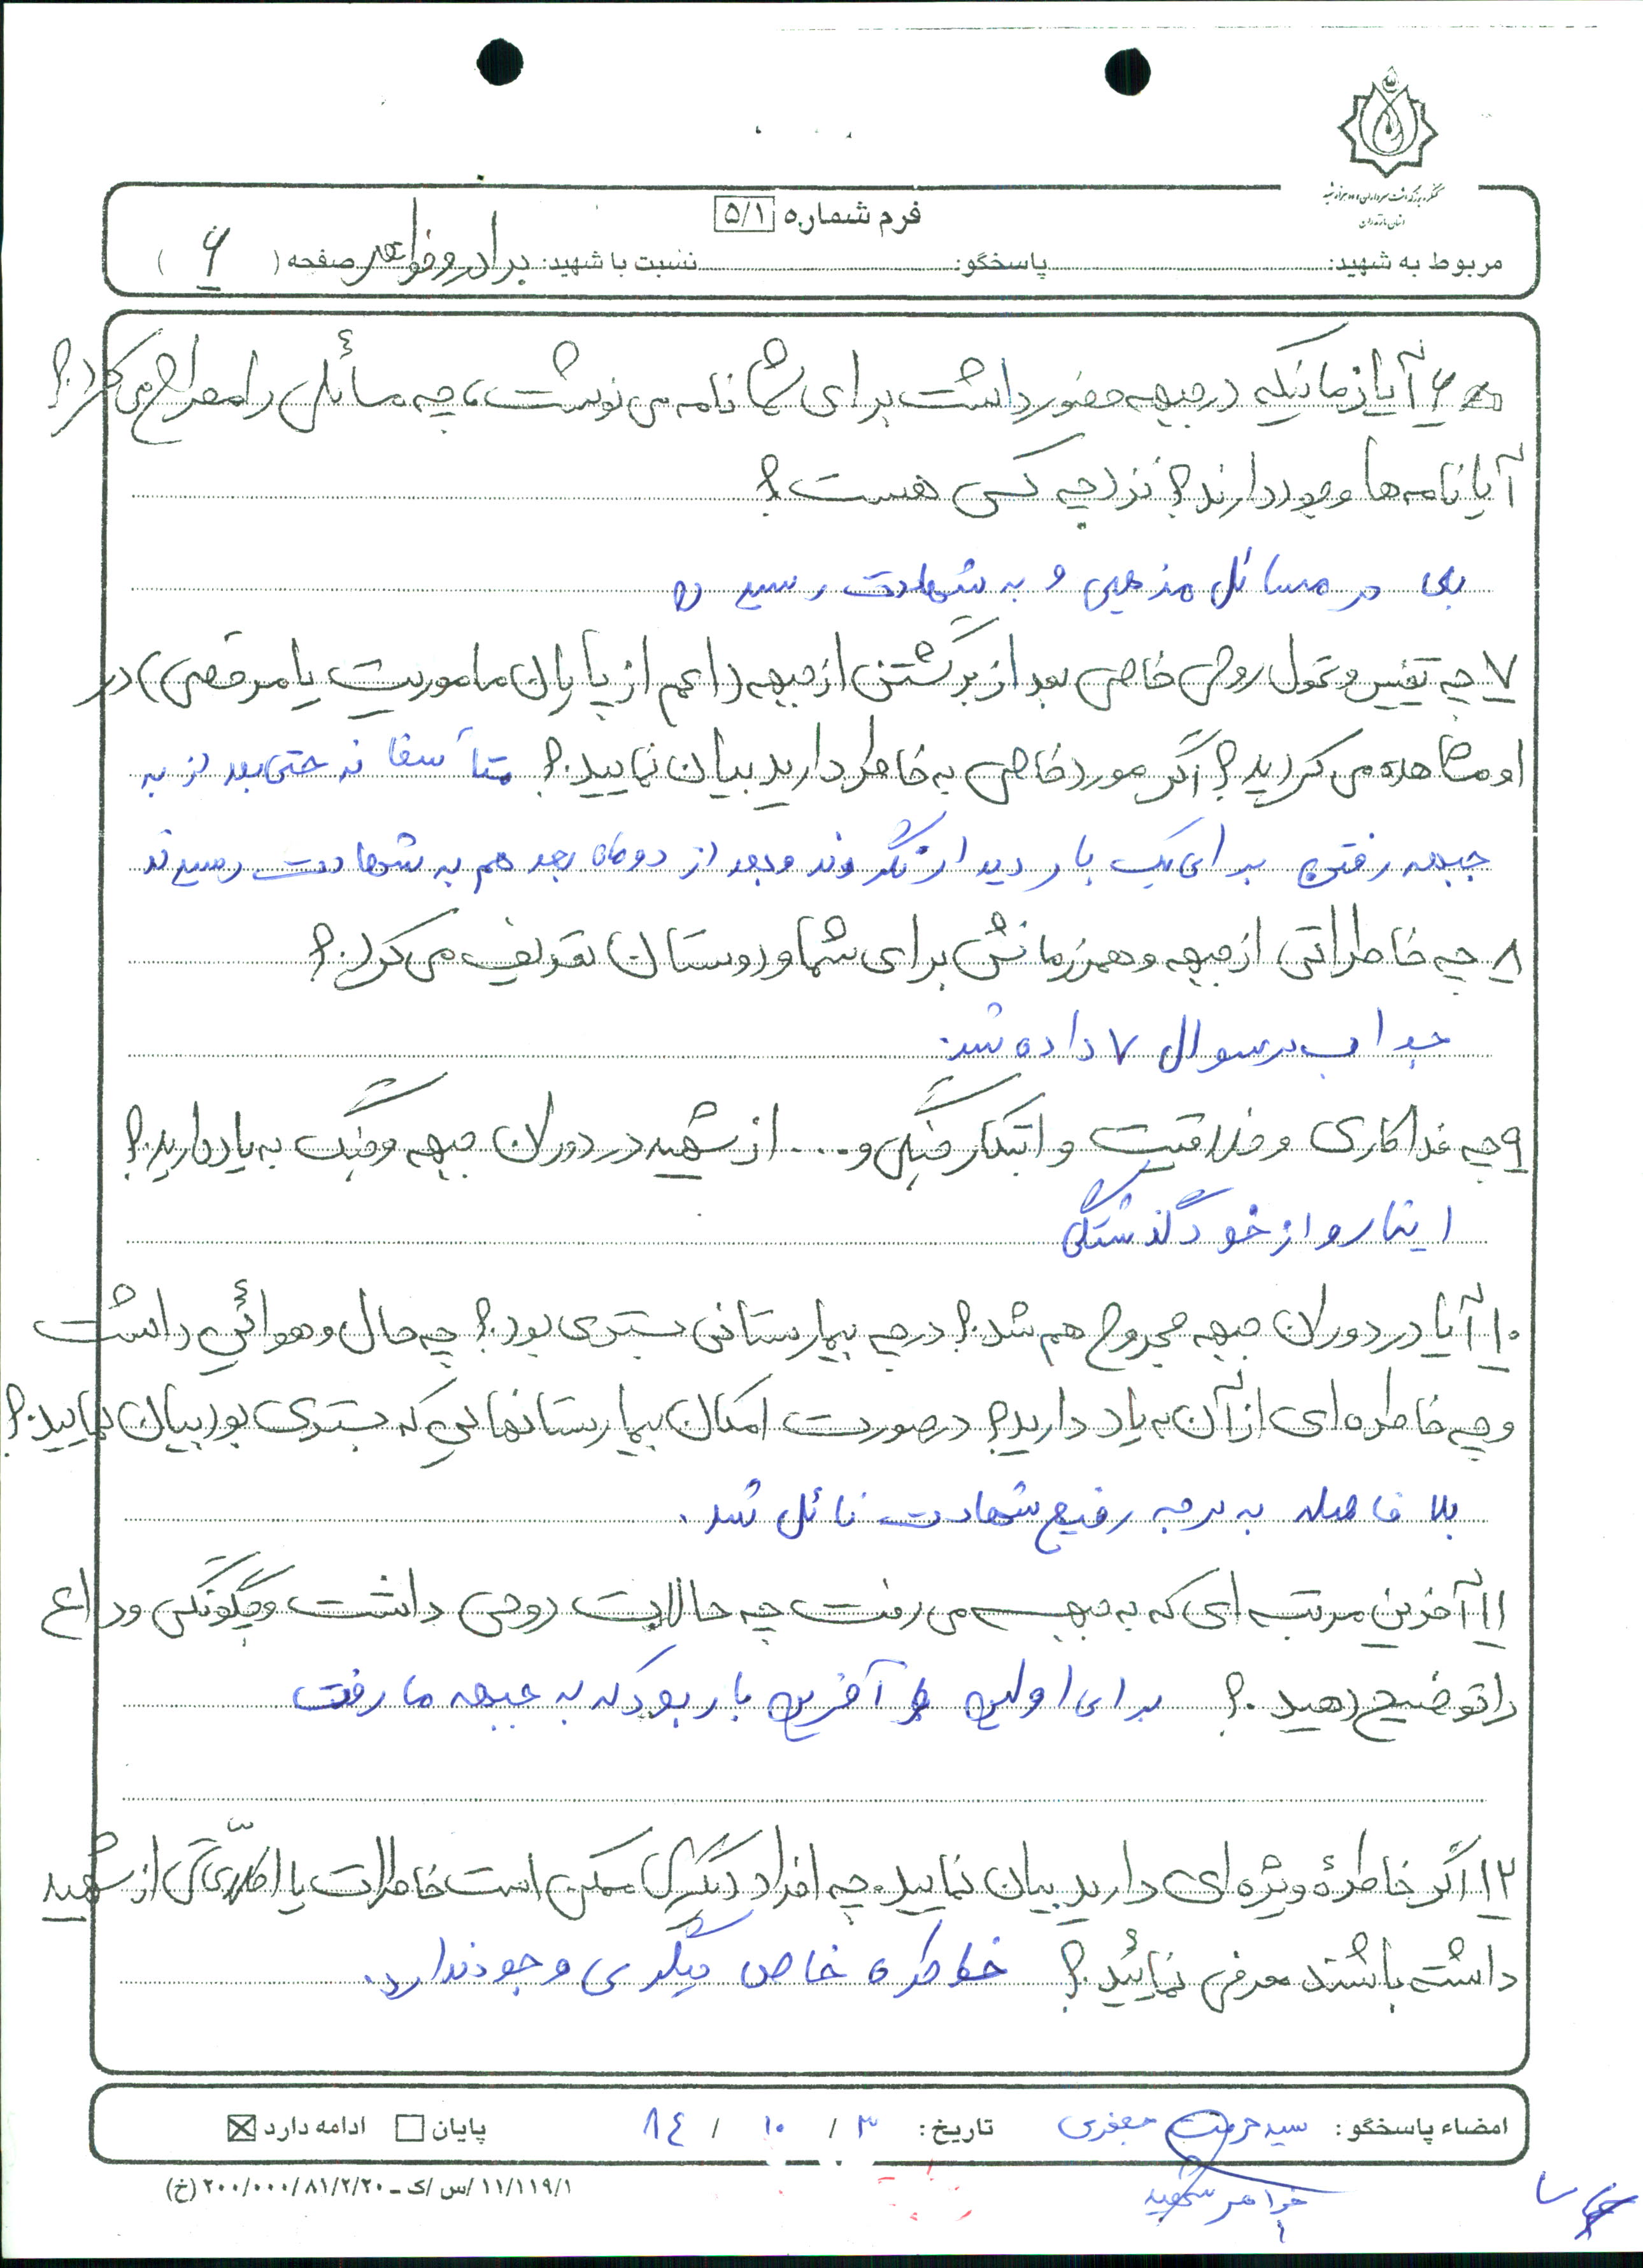 کنگره بزرگداشت سرداران و ده هزار شهید
استان مازندران
فرم شماره ۵/۱
مربوط به شهید: پاسخگو: نسبت با شهید: برادر و خواهر صفحه ( ۶ )
۶ آیا زمانیکه در جبهه حضور داشت برای شما نامه می نوشت، چه مسائلی را مطرح می کرد.؟
آیا نامه ها وجود دارند؟ نزد چه کسی هست؟
بلی در مسائل مذهبی و به شهادت رسیدن
۷ چه تغییر و تحول روحی خاصی بعد از برگشتن از جبهه (اعم از پایان ماموریت یا مرخصی) در
او مشاهده می کردید؟ اگر مورد خاصی به خاطر دارید بیان نمایید.؟ متأسفانه حتی بعد از به
جبهه رفتن برای یک بار دیدار نکردند و بعد از دو ماه بعد هم به شهادت رسیدند
۸ چه خاطراتی از جبهه و همرزمانش برای شما و دوستان تعریف می کرد.؟
جواب در سوال ۷ داده شد.
۹ چه فداکاری و خلاقیت و ابتکار جنگی و .... از شهید در دوران جبهه و جنگ به یاد دارید.؟
ایثار و از خود گذشتگی
۱۰ آیا در دوران جبهه مجروح هم شد.؟ در چه بیمارستانی بستری بود.؟ چه حال و هوائی داشت
و چه خاطره ای از آن به یاد دارید؟ در صورت امکان بیمارستانهایی که بستری بود بیان نمایید.؟
بلا فاصله به درجه رفیع شهادت نائل شد.
۱۱ آخرین مرتبه ای که به جبهه می رفت چه حالات روحی داشت و چگونگی وداع
را توضیح دهید.؟ برای اولین و آخرین بار بود که به جبهه ها رفت
۱۲ اگر خاطرهٔ ویژه ای دارید بیان نمایید. چه افراد دیگری ممکن است خاطرات یا اطلاعاتی از شهید
داشته باشند معرفی نمائید.؟ خاطره خاص دیگری وجود ندارد.
امضاء پاسخگو: سید حرمت جعفری تاریخ: ۳ / ۱۰ / ۸۴ پایان ☐ ادامه دارد ☒
خواهر شهید
۱۱/۱۱۹/۱ /س /ک ـ ۲۰۰/۰۰۰/۸۱/۲/۲۰ (خ)